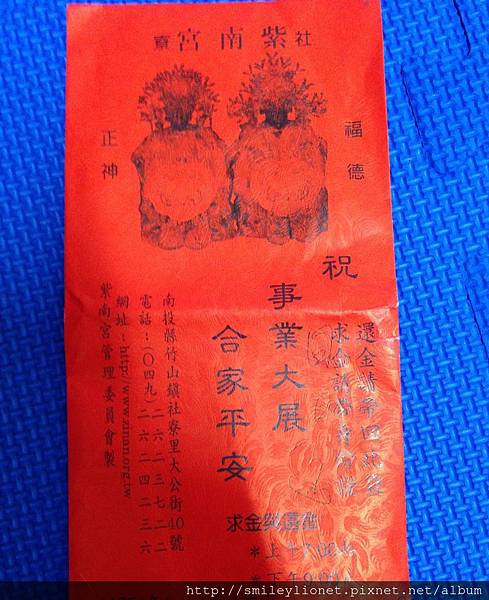 社
紫南宮
福德
正神
祝
事業大展
合家平安
還金請帶回此袋
求金請帶身份證
求金與還金
*上午7:00
*下午9:00
南投縣竹山鎮社寮里大公街40號
電話:(〇四九)二六二三七二二
二六二四二三六
網址:http://www.xinan.org.tw
紫南宮管理委員會製
http://smileylionet.pixnet.net/album